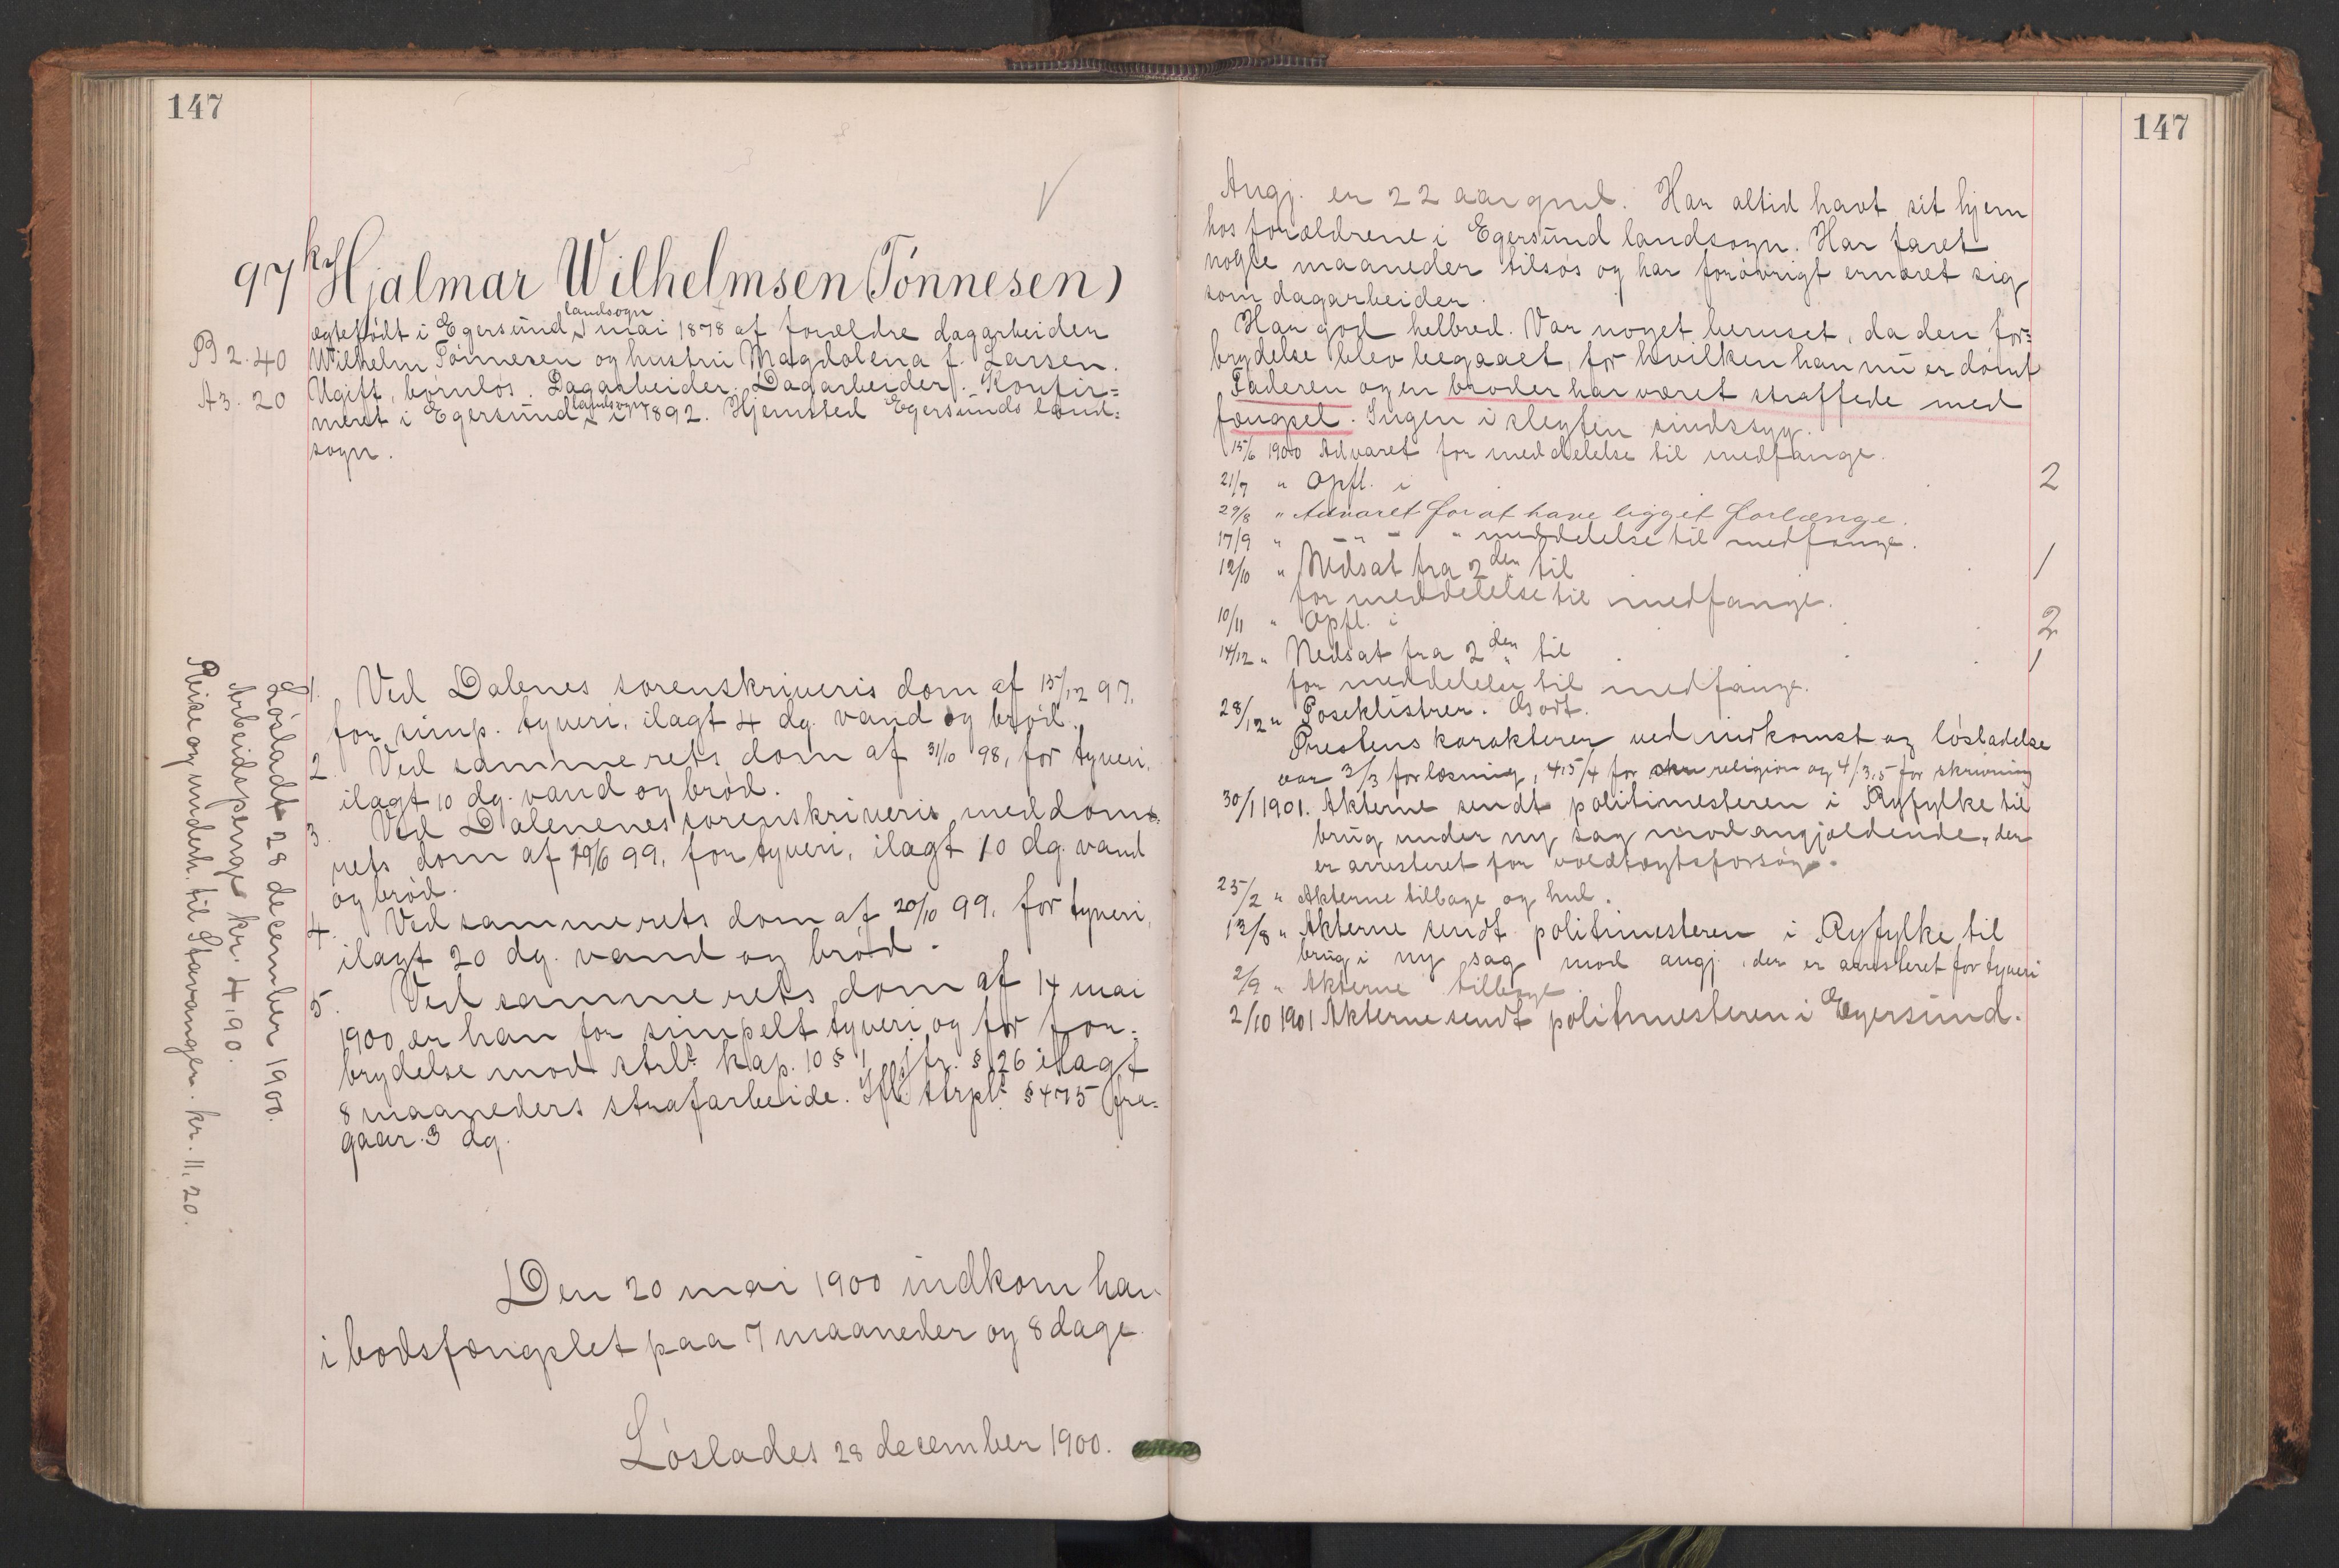 147
97 kr Hjalmar Wilhelmsen (Tónnesen)
landsogn
ægtefødt i Egersund mai 1878 af forældre dagarbeider
P 2. 40
Wilhelm Tónnesen og hustru Magdalena f. Larsen.
A 3. 20
Ugift, børnløs. Dagarbeider. Dagarbeider. Konfir=
landsogn
meret i Egersund i 1892. Hjemsted Egersunds land=
sogn.
1. Ved Dalenes sorenskriveris dom af 15/12 97,
for simp. tyveri, ilagt 4 dg. vand og brød.
2. Ved samme rets dom af 31/10 98, for tyveri,
ilagt 10 dg. vand og brød.
3. Ved Dalenenes sorenskriveris meddoms
rets dom af 19/6 99, for tyveri, ilagt 10 dg. vand
og brød.
4. Ved samme rets dom af 20/10 99, for tyveri,
ilagt 20 dg. vand og brød.
5. Ved samme rets dom af 14 mai
1900 er han for simpelt tyveri og for for=
brydelse mod strl. kap. 10 § 1 jfr. § 26 ilagt
8 maaneders strafarbeide. Ifl. strpl. § 475 fra=
gaar 3 dg.
Løsladt 28 december 1900.
Arbeidspenge kr. 4,90.
Reise og underh. til Stavanger. kr. 11,20.
Den 20 mai 1900 indkom han
i bodsfængslet paa 7 maaneder og 8 dage
Løslades 28 december 1900.
147
Angj. er 22 aar gml. Har altid havt sit hjem
hos forældrene i Egersund landsogn. Har faret
nogle maaneder tilsøs og har forøvrigt ernæret sig
som dagarbeider.
Har god helbred. Var noget beruset, da den for=
brydelse blev begaaet, for hvilken han nu er dømt
Faderen og en broder har været straffede med
fængsel. Ingen i slegten sindssyg.
15/6 1900 Advaret for meddelelse til medfange.
21/7 " Opfl. i 2
29/8 " Advaret for at have ligget forlænge.
17/9 " – " – " meddelelse til medfange.
12/10 " Nedsat fra 2den til 1
for meddelelse til medfange.
10/11 " Opfl. i 2
14/12 " Nedsat fra 2den til 1
for meddelelse til medfange.
28/12 " Poseklistrer. Godt.
Prestens karakterer ved indkomst og løsladelse
var 3/3 for læsning, 4,5/4 for religion og 4/3,5 for skrivning
30/1 1901. Akterne sendt politimesteren i Ryfylke til
brug under ny sag mod angjældende, der
er arresteret for voldtægtsforsøg.
25/2 " Akterne tilbage og hul.
13/8 " Akterne sendt politimesteren i Ryfylke til
brug i ny sag mod angj., der er arresteret for tyveri
2/9 " Akterne tilbage.
2/10 1901 Akterne sendt politimesteren i Egersund.